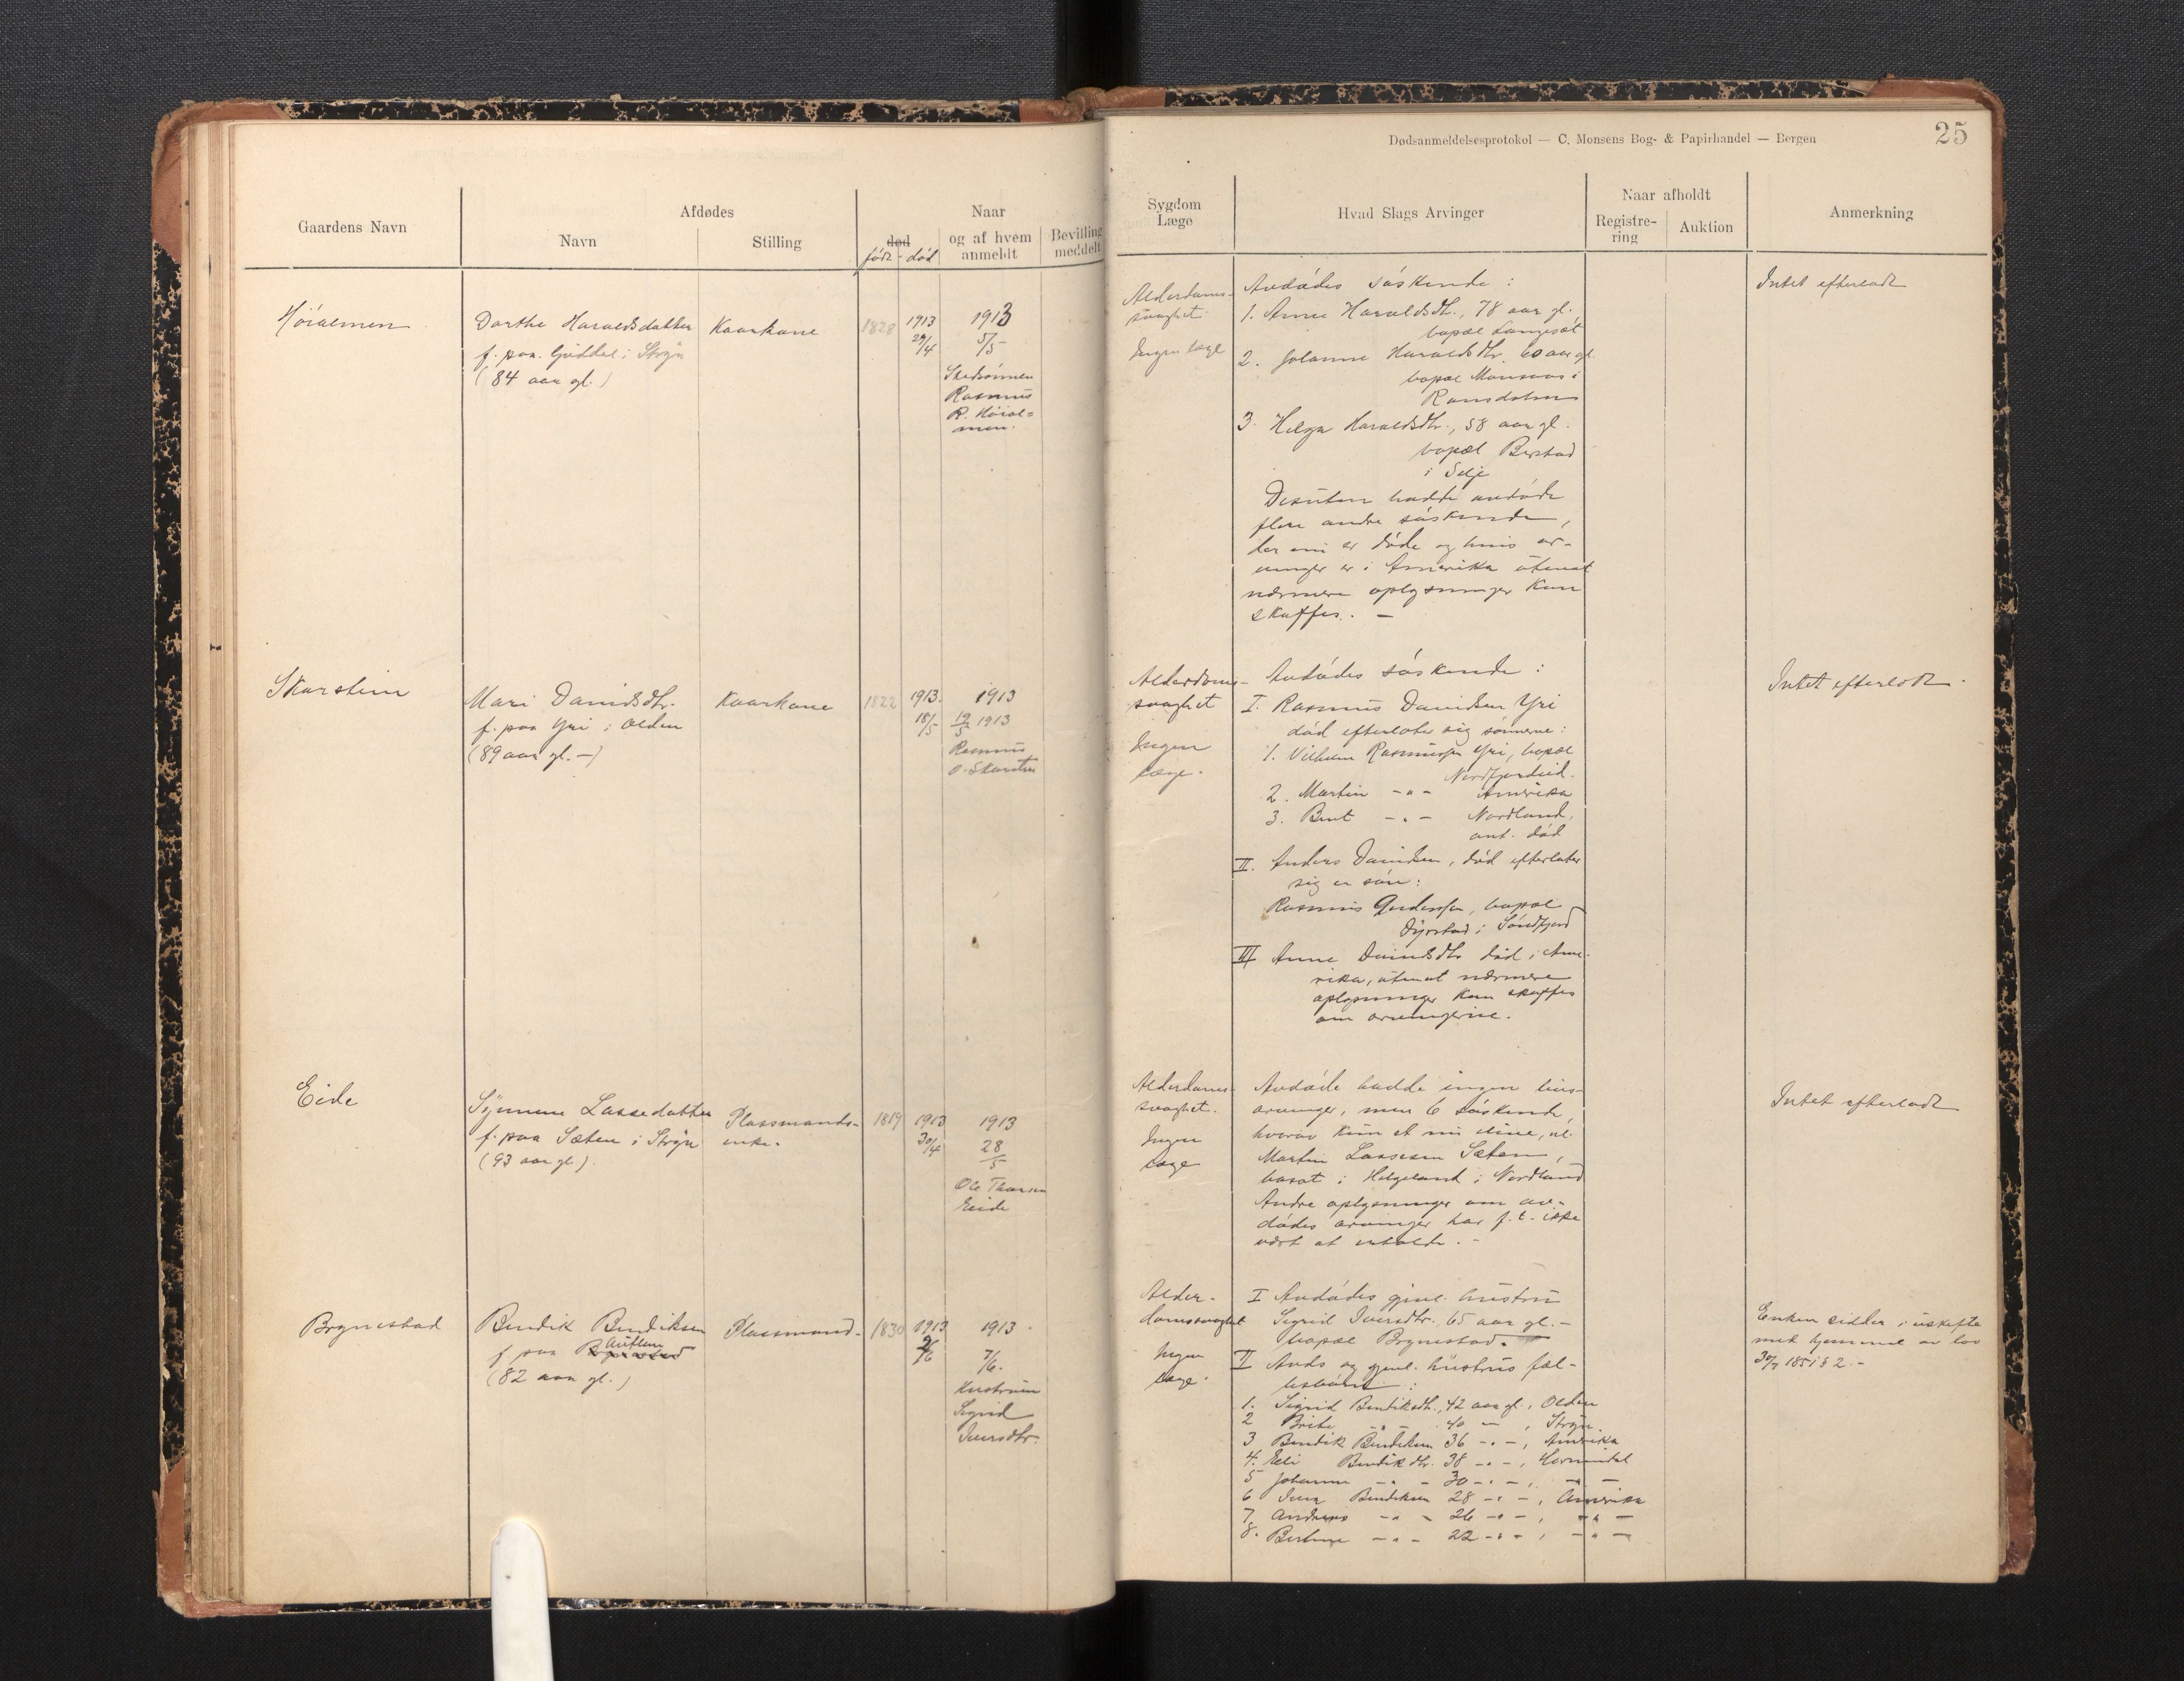 Dødsanmeldelsesprotokol — C. Monsens Bog- & Papirhandel — Bergen
25
Gaardens Navn
Afdødes
Navn
Stilling
Naar
død
født - død
og af hvem anmeldt
Bevilling meddelt
Sygdom
Læge
Hvad Slags Arvinger
Naar afholdt
Registre-
ring
Auktion
Anmerkning
Höialmen
Dorthe Haraldsdatter
f. paa Gjuddal i Strÿn
(84 aar gl.)
Kaarkone
1828
1913
29/4
1913
5/5
Stedsönnen
Rasmus
R. Höial=
men.
Alderdoms-
svaghet
Ingen læge
Avdödes söskende :
1. Anne Haraldsdtr., 78 aar gl.,
bopæl Langesæt
2. Johanne Haraldsdtr. 60 aar gl.
bopæl Monsaas i
Romsdalen
3. Helga Haraldsdtr., 58 aar gl.
bopæl Berstad
i Selje
Desuten hadde avdöde
flere andre söskende,
der nu er döde og hvis ar-
vinger er i Amerika utenat
nærmere oplysninger kan
skaffes. —
Intet efterladt
Skarstein
Mari Danielsdtr.
f. paa Yri i Olden
(89 aar gl. —)
Kaarkone
1822
1913.
18/5
1913
19/5 1913
Rasmus
O. Skarsten
Alderdoms-
svaghet
Ingen
læge.
Avdödes söskende :
I. Rasmus Danielsen Yri
död efterlater sig sönnerne :
1. Vilhelm Rasmussen Yri, bopæl
Nordfjordeid.
2. Martin -"- Amerika
3. Bent -"- Nordland,
ant. död
II. Anders Danielsen, död efterlater
sig en sön :
Rasmus Anderssen, bopæl
Dÿrstad i Söndfjord
III Anne Danielsdtr. död i Ame-
rika, utenat nærmere
oplysninger kan skaffes
om arvingerne.
Intet efterladt.
Eide
Sÿnneve Lassedatter
f. paa Sæten i Strÿn
(93 aar gl.).
Plassmands-
enke.
1819
1913
30/4
1913
28/5
Ole Thorsen
Eeide
Alderdoms-
svaghet.
Ingen
læge
Avdöde hadde ingen livs-
arvinger, men 6 söskende,
hvorav kun et nu elive, nl.
Martin Lassesen Sæten,
bosat i Helgeland i Nordland
Andre oplysninger om av-
dödes arvinger har f. t. ikke
vært at erholde. -
Intet efterladt
Brynestad
Bendik Bendiksen
f. paa Auflem
(82 aar gl.)
Plassmand.
1830
1913
2/6
1913
7/6.
Hustruen
Sigrid
Iversdtr.
Alder-
domssvaghet
Ingen
læge.
I Avdödes gjenl. hustru
Sigrid Iversdtr. 65 aar gl. —
bopæl Brynestad.
II Avds og gjenl. hustrus fæl-
lesbörn :
1. Sigrid Bendiksdtr., 42 aar gl., Olden
2 Brite -"- 40 — , Strÿn.
3 Bendik Bendiksen 36 -"-, Amerika
4. Eli Bendiksdtr. 38 -"-, Hornindal
5 Johanne -"- 30 -"-, -"-
6 Iver Bendiksen 28 -"-, Amerika
7. Andreas -"- 26 -"-, -"-
8. -"- 22 -"-, -"-
Enken sidder i uskifte
med hjemmel av lov
30/7 1851 § 2. -